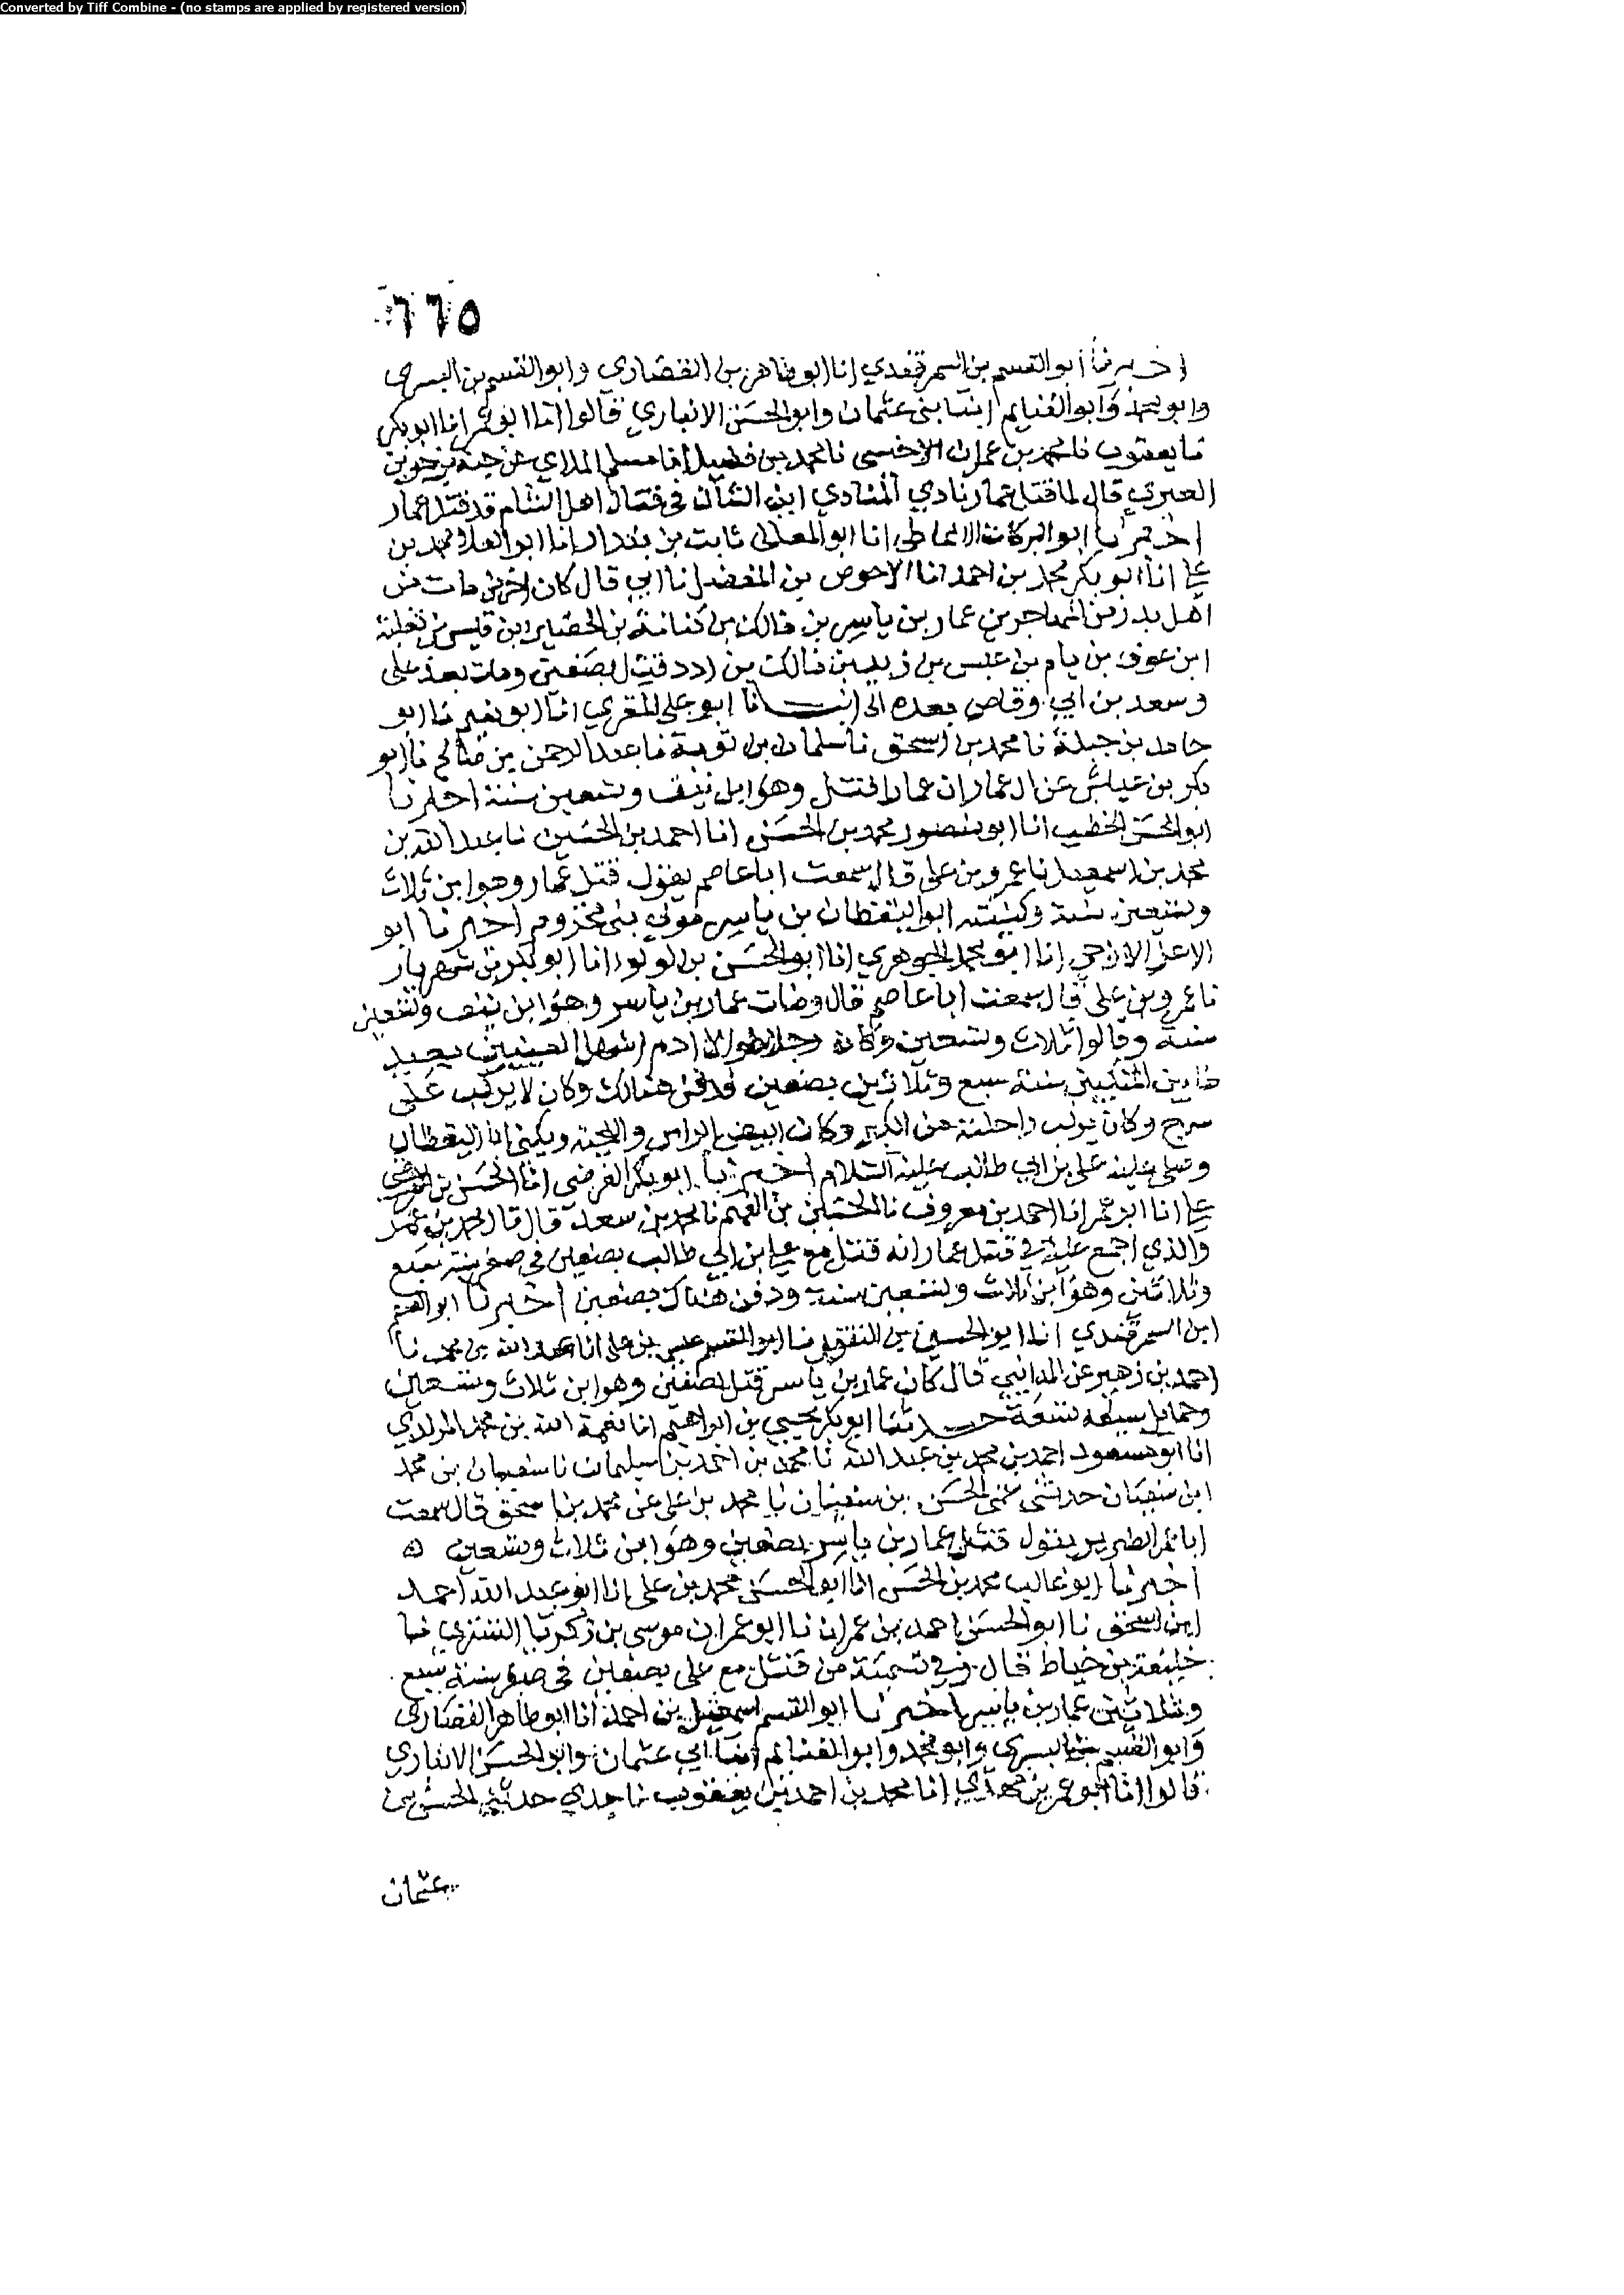 Converted by Tiff Combine - (no stamps are applied by registered version)
٦٦٥
اخبرنا ابو القسم بن السمرقندي انا ابو طاهر بن القصاري وابو القسم بن البسري
وابو محمد وابو الغنايم ابنا بني عثمان وابو الحسن الانباري قالوا انا ابو عمر انا ابو بكر
نا يعقوب نا محمد بن عمران الاخنسي نا محمد بن فضيل انا مسلم الملاي عن حبة بن جوين
العبري قال لما قتل عمار نادي المنادي اين الشان في قتال اهل الشام قد قتل عمار
اخبرنا ابو البركات الانماطي انا ابو المعالي ثابت بن بندار انا ابو العلا محمد بن
علي انا ابو بكر محمد بن احمد انا الاحوص بن المفضل انا ابي قال كان اخر من مات من
اهل بدر من المهاجرين عمار بن ياسر بن مالك بن كنانة بن الحصير ابن قيس بن ثعلبة
ابن عوف بن يام بن عبس بن زيد بن مالك بن ادد قتل بصفين ومات بعد علي
وسعد بن ابي وقاص بعده الى انبانا ابو علي المقري انا ابو نعيم نا ابو
حامد بن جبلة نا محمد بن اسحق نا سلمان بن توبة نا عبد الرحمن بن صالح نا ابو
بكر بن عياش عن ال عمار ان عمارا قتل وهو ابن نيف وتسعين سنة اخبرنا
ابو الحسن الخطيب انا ابو منصور محمد بن الحسن انا احمد بن الحسين نا عبد الله بن
محمد بن اسمعيل نا عمرو بن على قال سمعت ابا عاصم يقول قتل عمار وهو ابن ثلاث
وتسعين سنة وكنيته ابو اليقظان بن ياسر مولي بني مخزوم اخبرنا ابو
الاعز الازجي انا ابو محمد الجوهري انا ابو الحسن بن لولو انا ابو بكر بن شهريار
نا عمرو بن علي قال سمعت ابا عاصم قال ومات عمار بن ياسر وهو ابن نيف وتسعين
سنة وقالوا ثلاث وتسعين وكان رجلا طوالا ادم اشهل العينين بعيد
ما بين المنكبين سنة سبع وثلاثين بصفين ودفن هنالك وكان لا يركب على
سرج وكان يركب راحلته من الكبر وكان ابيض الراس واللحية ويكنى ابا اليقظان
وصلى عليه علي بن ابي طالب عليه السلام اخبرنا ابو بكر الفرضي انا الحسن بن
علي انا ابو عمر انا احمد بن معروف نا الحسين بن الفهم نا محمد بن سعد قال قال محمد بن عمر
والذي اجمع عليه في قتل عمار انه قتل مع علي ابن ابي طالب بصفين في صفر سنة سبع
وثلاثين وهو ابن ثلاث وتسعين سنة ودفن هناك بصفين اخبرنا ابو القسم
ابن السمرقندي انا ابو الحسين بن النقور انا ابو القسم عيسى بن على انا عبد الله بن محمد نا
احمد بن زهير عن المدايني قال كان عمار بن ياسر قتل بصفين وهو ابن ثلاث وتسعين
حدثنا ابو بكر يحيى بن ابراهيم انا نعمة الله بن محمد المرندي
انا ابو مسعود احمد بن محمد بن عبد الله نا محمد بن احمد بن سليمان نا سفيان بن محمد
ابن سفيان حدثني عمي الحسن بن سفيان نا محمد بن على عن محمد بن اسحق قال سمعت
ابا عمر الضرير يقول قتل عمار بن ياسر بصفين وهو ابن ثلاث وتسعين ه
اخبرنا ابو غالب محمد بن الحسن انا ابو الحسن محمد بن على انا ابو عبد الله احمد
ابن اسحق نا ابو الحسن احمد بن عمران نا ابو عمران موسى بن زكريا التستري نا
خليفة بن خياط قال وفي تسمية من قتل مع على بصفين في صفر سنة سبع
وثلاثين عمار بن ياسر اخبرنا ابو القسم اسمعيل بن احمد انا ابو طاهر القصاري
وابو القسم بن البسري وابو محمد وابو الغنايم ابنا ابي عثمان وابو الحسن الانباري
قالوا انا ابو عمر بن مهدي انا محمد بن احمد بن يعقوب نا جدي حدثني الحسن بن
عثمان